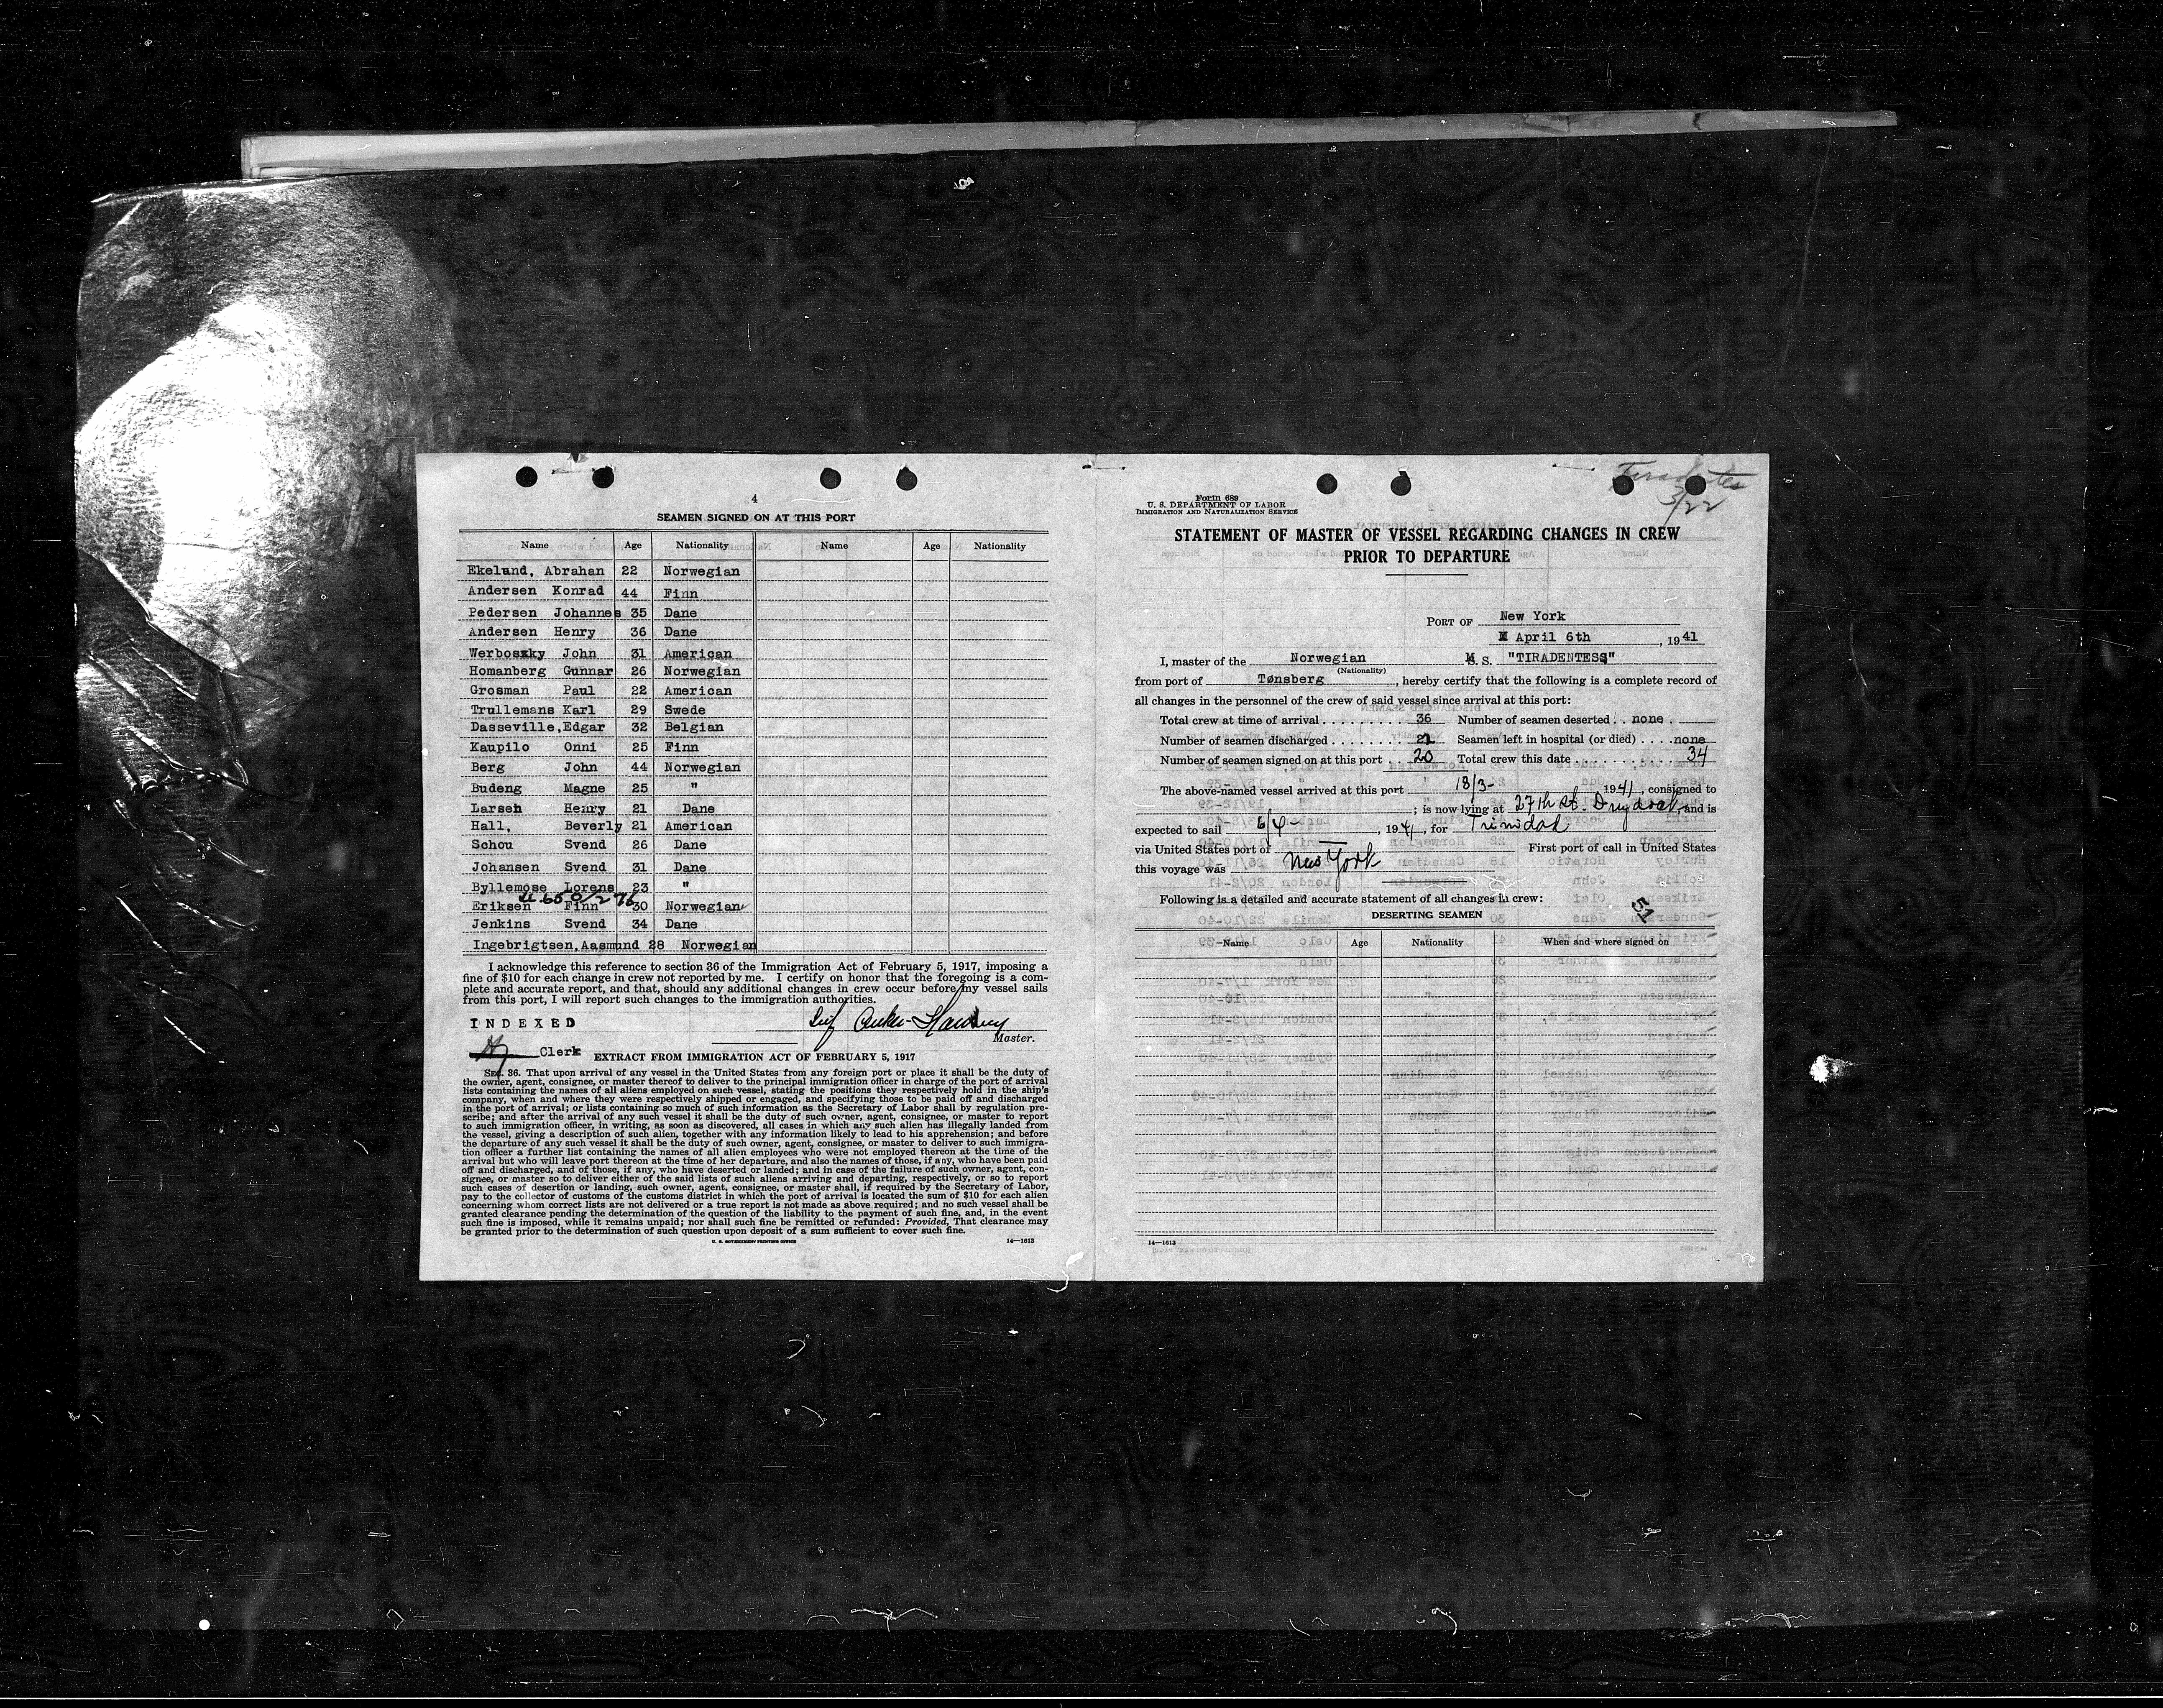 4
SEAMEN SIGNED ON AT THIS PORT
Name Age Nationality Name Age Nationality
Ekelund, Abrahan 22 Norwegian
Andersen Konrad 44 Finn
Pedersen Johannes 35 Dane
Andersen Henry 36 Dane
Werboszky John 31 American
Homanberg Gunnar 26 Norwegian
Grosman Paul 22 American
Trullemans Karl 29 Swede
Dasseville, Edgar 32 Belgian
Kaupilo Onni 25 Finn
Berg John 44 Norwegian
Budeng Magne 25 "
Larsen Henry 21 Dane
Hall, Beverly 21 American
Schou Svend 26 Dane
Johansen Svend 31 Dane
Byllemose Lorens 23 "
Eriksen Finn 30 Norwegian
Jenkins Svend 34 Dane
Ingebrigtsen, Aasmund 28 Norwegian
I acknowledge this reference to section 36 of the Immigration Act of February 5, 1917, imposing a
fine of $10 for each change in crew not reported by me. I certify on honor that the foregoing is a com-
plete and accurate report, and that, should any additional changes in crew occur before my vessel sails
from this port, I will report such changes to the immigration authorities.
INDEXED
Master.
Clerk
EXTRACT FROM IMMIGRATION ACT OF FEBRUARY 5, 1917
SEC. 36. That upon arrival of any vessel in the United States from any foreign port or place it shall be the duty of
the owner, agent, consignee, or master thereof to deliver to the principal immigration officer in charge of the port of arrival
lists containing the names of all aliens employed on such vessel, stating the positions they respectively hold in the ship's
company, when and where they were respectively shipped or engaged, and specifying those to be paid off and discharged
in the port of arrival; or lists containing so much of such information as the Secretary of Labor shall by regulation pre-
scribe; and after the arrival of any such vessel it shall be the duty of such owner, agent, consignee, or master to report
to such immigration officer, in writing, as soon as discovered, all cases in which any such alien has illegally landed from
the vessel, giving a description of such alien, together with any information likely to lead to his apprehension; and before
the departure of any such vessel it shall be the duty of such owner, agent, consignee, or master to deliver to such immigra-
tion officer a further list containing the names of all alien employees who were not employed thereon at the time of the
arrival but who will leave port thereon at the time of her departure, and also the names of those, if any, who have been paid
off and discharged, and of those, if any, who have deserted or landed; and in case of the failure of such owner, agent, con-
signee, or master so to deliver either of the said lists of such aliens arriving and departing, respectively, or so to report
such cases of desertion or landing, such owner, agent, consignee, or master shall, if required by the Secretary of Labor,
pay to the collector of customs of the customs district in which the port of arrival is located the sum of $10 for each alien
concerning whom correct lists are not delivered or a true report is not made as above required; and no such vessel shall be
granted clearance pending the determination of the question of the liability to the payment of such fine, and, in the event
such fine is imposed, while it remains unpaid; nor shall such fine be remitted or refunded: Provided, That clearance may
be granted prior to the determination of such question upon deposit of a sum sufficient to cover such fine.
U. S. GOVERNMENT PRINTING OFFICE 14—1613
Tiradentes
3/22
Form 689
U. S. DEPARTMENT OF LABOR
IMMIGRATION AND NATURALIZATION SERVICE
STATEMENT OF MASTER OF VESSEL REGARDING CHANGES IN CREW
PRIOR TO DEPARTURE
PORT OF New York
April 6th, 1941
I, master of the Norwegian M. S. "TIRADENTESS"
(Nationality)
from port of Tønsberg, hereby certify that the following is a complete record of
all changes in the personnel of the crew of said vessel since arrival at this port:
Total crew at time of arrival 36 Number of seamen deserted none
Number of seamen discharged Seamen left in hospital (or died) none
Number of seamen signed on at this port 20 Total crew this date 34
The above-named vessel arrived at this port 18/3-, 1941, consigned to
; is now lying at 27th st. Drydock and is
expected to sail 6/4-, 1941, for Trinidad
via United States port of — First port of call in United States
this voyage was New York
Following is a detailed and accurate statement of all changes in crew:
51
DESERTING SEAMEN
Name Age Nationality When and where signed on
14—1613